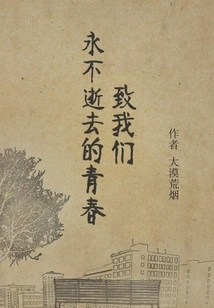 致我们
永不逝去的青春
作者 大漠荒烟